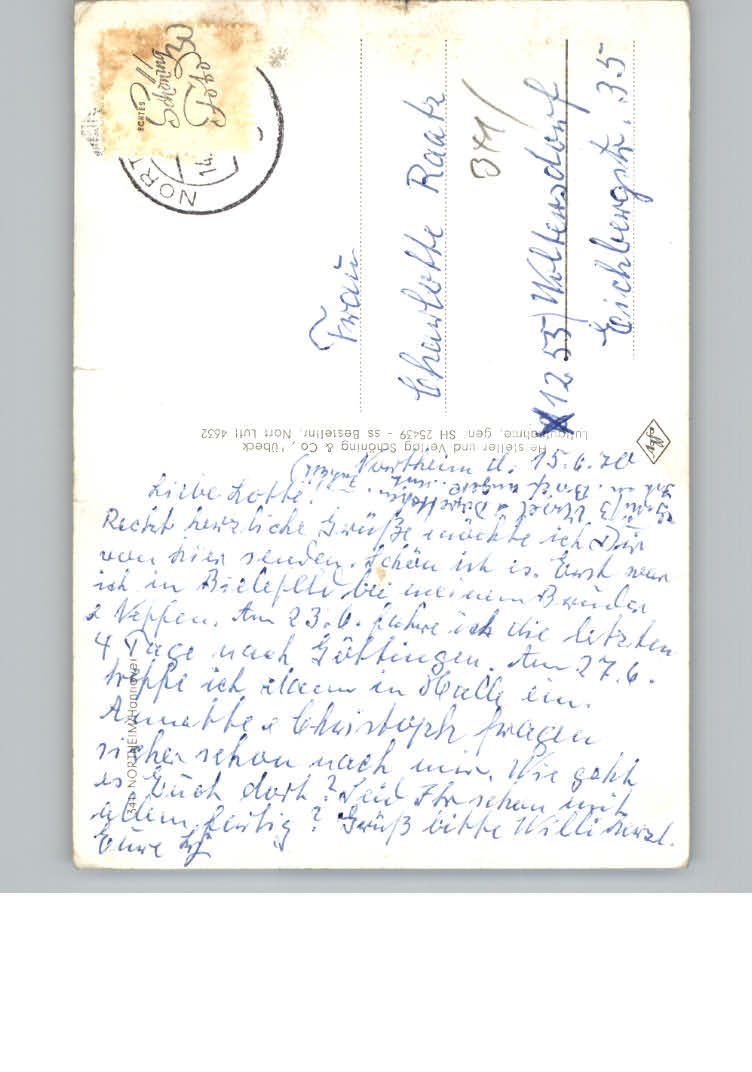 Northeim d. 15.6.70
Liebe Lotte!
Recht herzliche Grüße möchte ich Dir
von hier senden. Schön ist es. Erst war
ich in Bielefeld bei meinem Bruder
& Neffen. Am 23.6. fahre ich die letzten
4 Tage nach Göttingen. Am 27.6.
treffe ich dann in Halle ein.
Annette & Christoph fragen
sicher schon nach mir. Wie geht
es Euch dort? Seid Ihr schon mit
allem fertig? Grüß bitte Willi herzl.
Eure
341 NORTHEIM/Hannover
Hersteller und Verlag Schöning & Co., Lübeck
Luftaufnahme, gen. SH 25439 - ss Bestellnr. Nort Luft 4632
Agfa
ECHTES
Schöning
Foto
NORT
14.
Frau
Charlotte Raatz
1255) Woltersdorf
Eichbergstr. 35